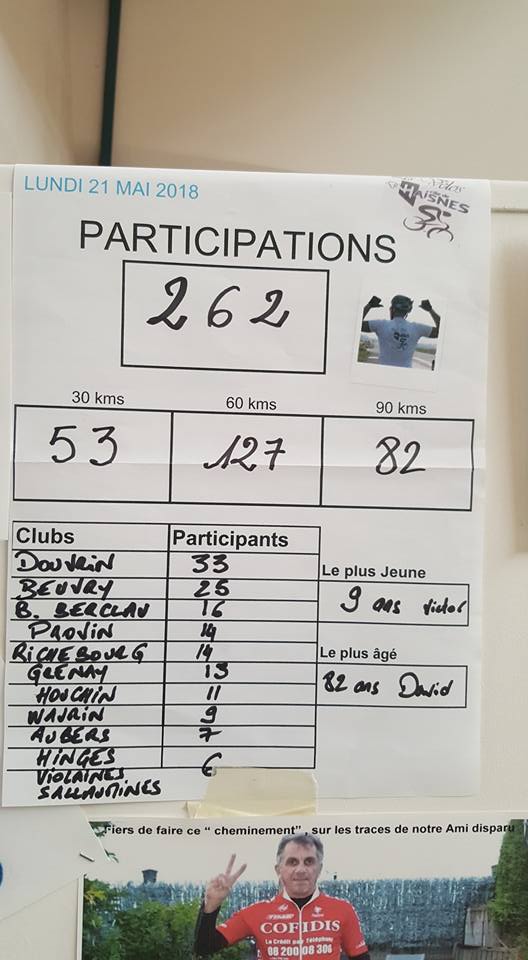 LUNDI 21 MAI 2018
Vélos
MAISNES
PARTICIPATIONS
262
30 kms 60 kms 90 kms
53 127 82
Clubs Participants
DOUVRIN 33
BEUVRY 25
B. BERCLAU 16
PROVIN 14
RICHEBOURG 14
GRENAY 13
HOUCHIN 11
WAVRIN 9
AUBERS 7
HINGES 6
VIOLAINES
SALLAUMINES
Le plus Jeune
9 ans Victor
Le plus âgé
82 ans David
Fiers de faire ce " cheminement" , sur les traces de notre Ami disparu
COFIDIS
Le Crédit par Téléphone
08 200 08 306